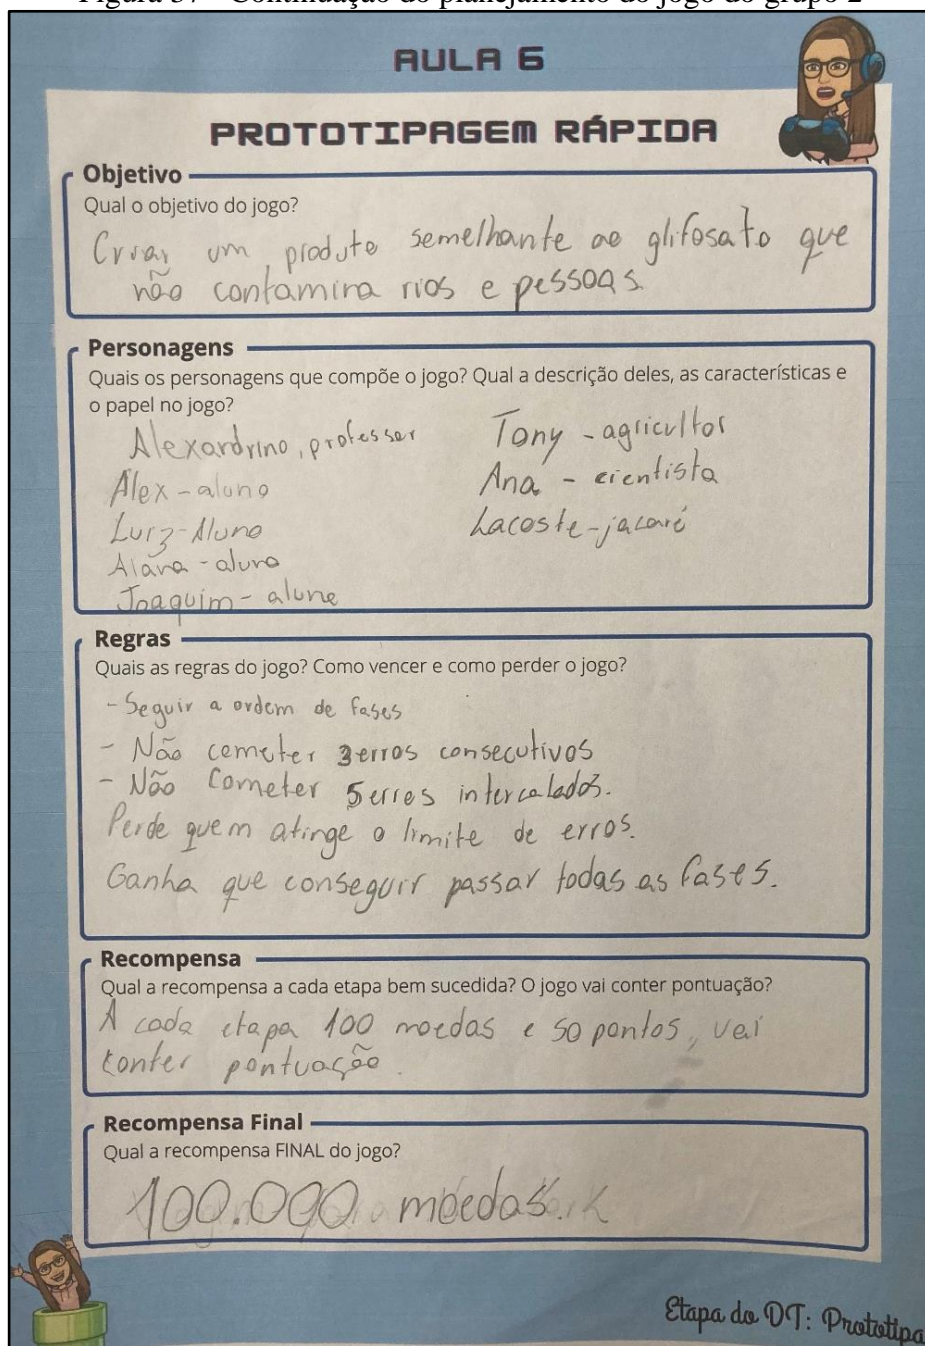 Figura 37 - Continuação do planejamento do jogo do grupo 2
AULA 6
PROTOTIPAGEM RÁPIDA
Objetivo
Qual o objetivo do jogo?
Criar um produto semelhante ao glifosato que
não contamina rios e pessoas.
Personagens
Quais os personagens que compõe o jogo? Qual a descrição deles, as características e
o papel no jogo?
Alexandrino, professor
Alex - aluno
Luiz - Aluno
Alana - aluna
Joaquim - aluno
Tony - agricultor
Ana - cientista
Lacoste - jacaré
Regras
Quais as regras do jogo? Como vencer e como perder o jogo?
- Seguir a ordem de fases
- Não cometer 3 erros consecutivos
- Não cometer 5 erros intercalados.
Perde quem atinge o limite de erros.
Ganha que conseguir passar todas as fases.
Recompensa
Qual a recompensa a cada etapa bem sucedida? O jogo vai conter pontuação?
A cada etapa 100 moedas e 50 pontos, vai
conter pontuação.
Recompensa Final
Qual a recompensa FINAL do jogo?
100.000 moedas.
Etapa do DT: Prototipa